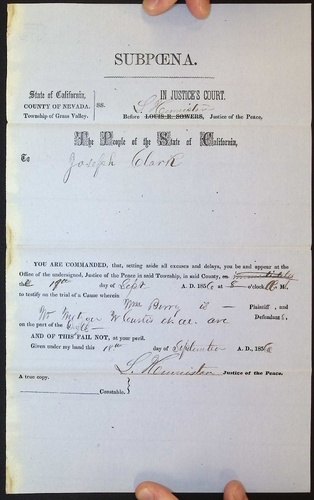 SUBPŒNA.
State of California,
COUNTY OF NEVADA.
Township of Grass Valley.
SS.
IN JUSTICE'S COURT.
Before LOUIS R. SOWERS, Justice of the Peace.
The People of the State of California,
To Joseph Clark
YOU ARE COMMANDED, that, setting aside all excuses and delays, you be and appear at the
Office of the undersigned, Justice of the Peace in said Township, in said County, on
the 19th day of Sept A. D. 1856 at 8 o'clock, M.
to testify on the trial of a Cause wherein
Wm Berry is Plaintiff, and
W Curtis et al. are Defendant s,
on the part of the
AND OF THIS FAIL NOT, at your peril.
Given under my hand this 18th day of September A. D., 1856
Justice of the Peace.
A true copy.
Constable.